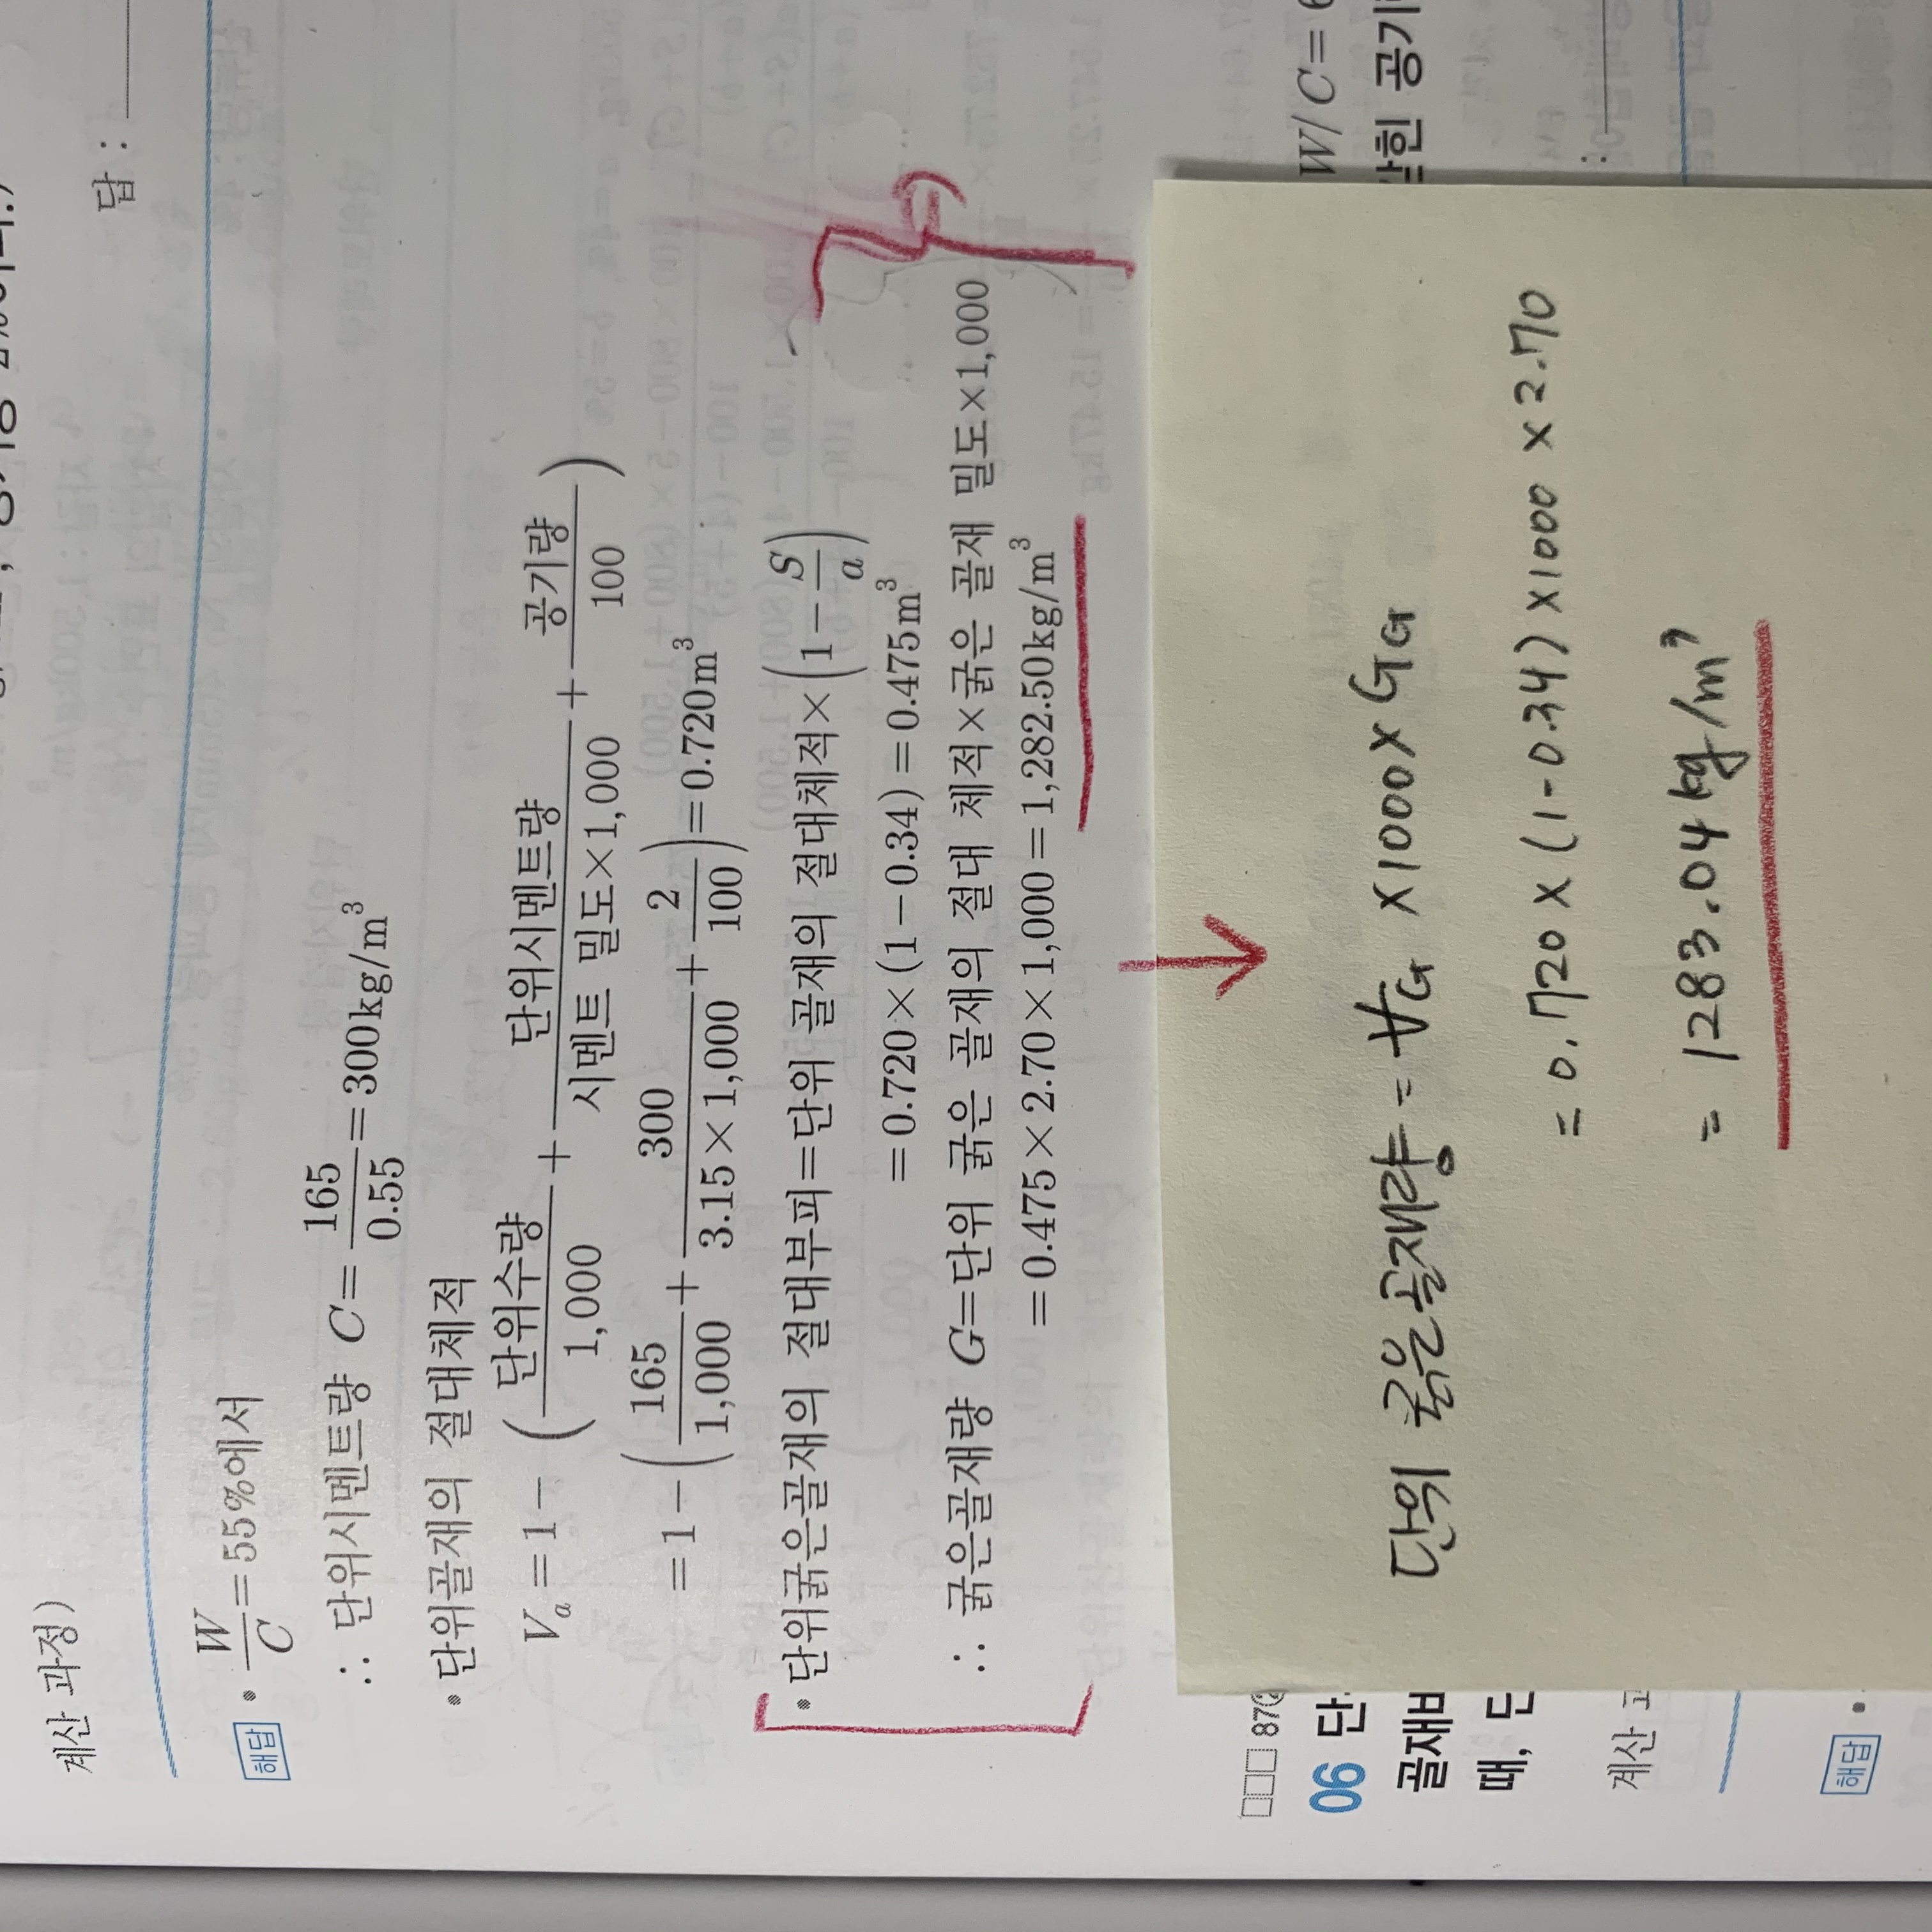 답 :
계산 과정)
해답 • W/C = 55%에서
∴ 단위시멘트량 C = 165/0.55 = 300kg/m³
• 단위골재의 절대체적
Va = 1 − (단위수량/1,000 + 단위시멘트량/시멘트 밀도×1,000 + 공기량/100)
= 1 − (165/1,000 + 300/3.15×1,000 + 2/100) = 0.720m³
• 단위굵은골재의 절대부피=단위 골재의 절대체적×(1 − S/a)
= 0.720×(1−0.34) = 0.475m³
∴ 굵은골재량 G=단위 굵은 골재의 절대 체적×굵은 골재 밀도×1,000
= 0.475×2.70×1,000 = 1,282.50kg/m³
→
단위 굵은골재량 = VG × 1000 × GG
= 0.720 × (1-0.34) × 1000 × 2.70
= 1283.04 kg/m³
06 단
W/C = 6
골재
공기
때, 단
계산
해답 •